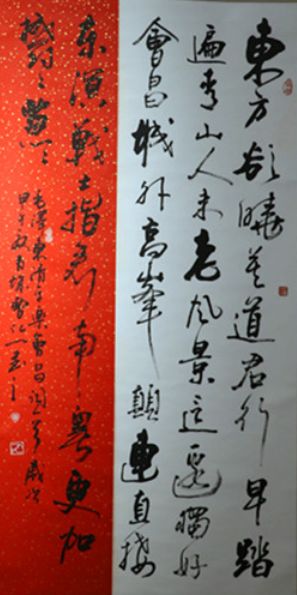 東方欲曉莫道君行早踏
遍青山人未老风景這邊獨好
會昌城外高峯顛連直接
東溟戰士指看南粤更加
鬱々葱々
毛澤東清平樂會昌词一首歲次
甲午秋月